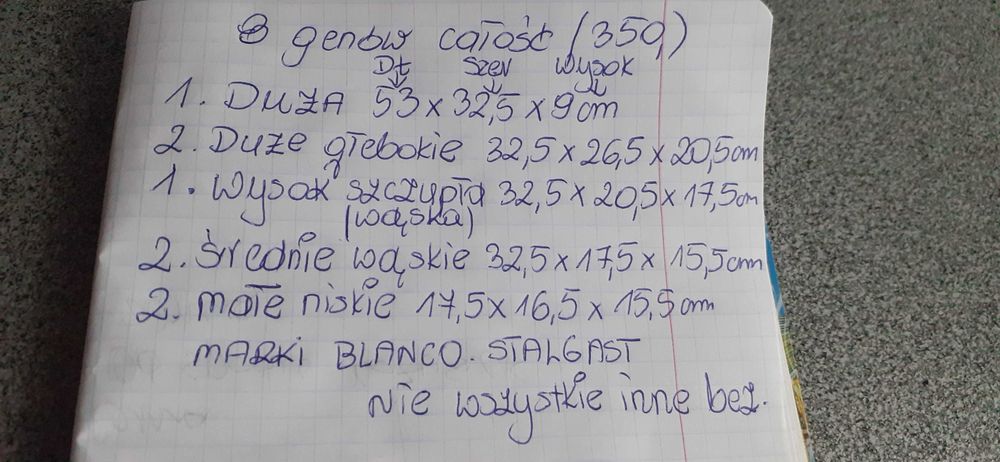 8 genów całość (350,)
Dł Szer Wysok
1. DUŻA 53 x 32,5 x 9 cm
2. Duże głębokie 32,5 x 26,5 x 20,5 cm
1. Wysok szczupła 32,5 x 20,5 x 17,5 cm
(wąska)
2. Średnie wąskie 32,5 x 17,5 x 15,5 cm
2. małe niskie 17,5 x 16,5 x 15,5 cm
MARKI BLANCO. STALGAST
nie wszystkie inne bez.